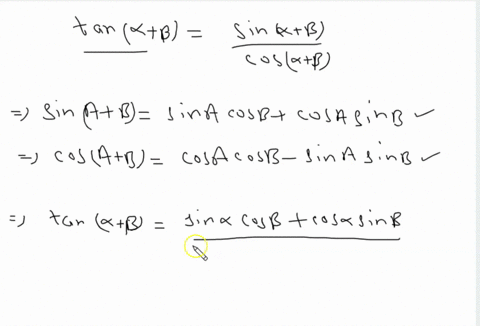 tan(α+β) = sin(α+β)
cos(α+β)
=> sin(A+B)= sinA cosB+ cosA sinB ✓
=> cos(A+B)= cosA cosB- sinA sinB ✓
=> tan(α+β) = sinα cosβ + cosα sinβ